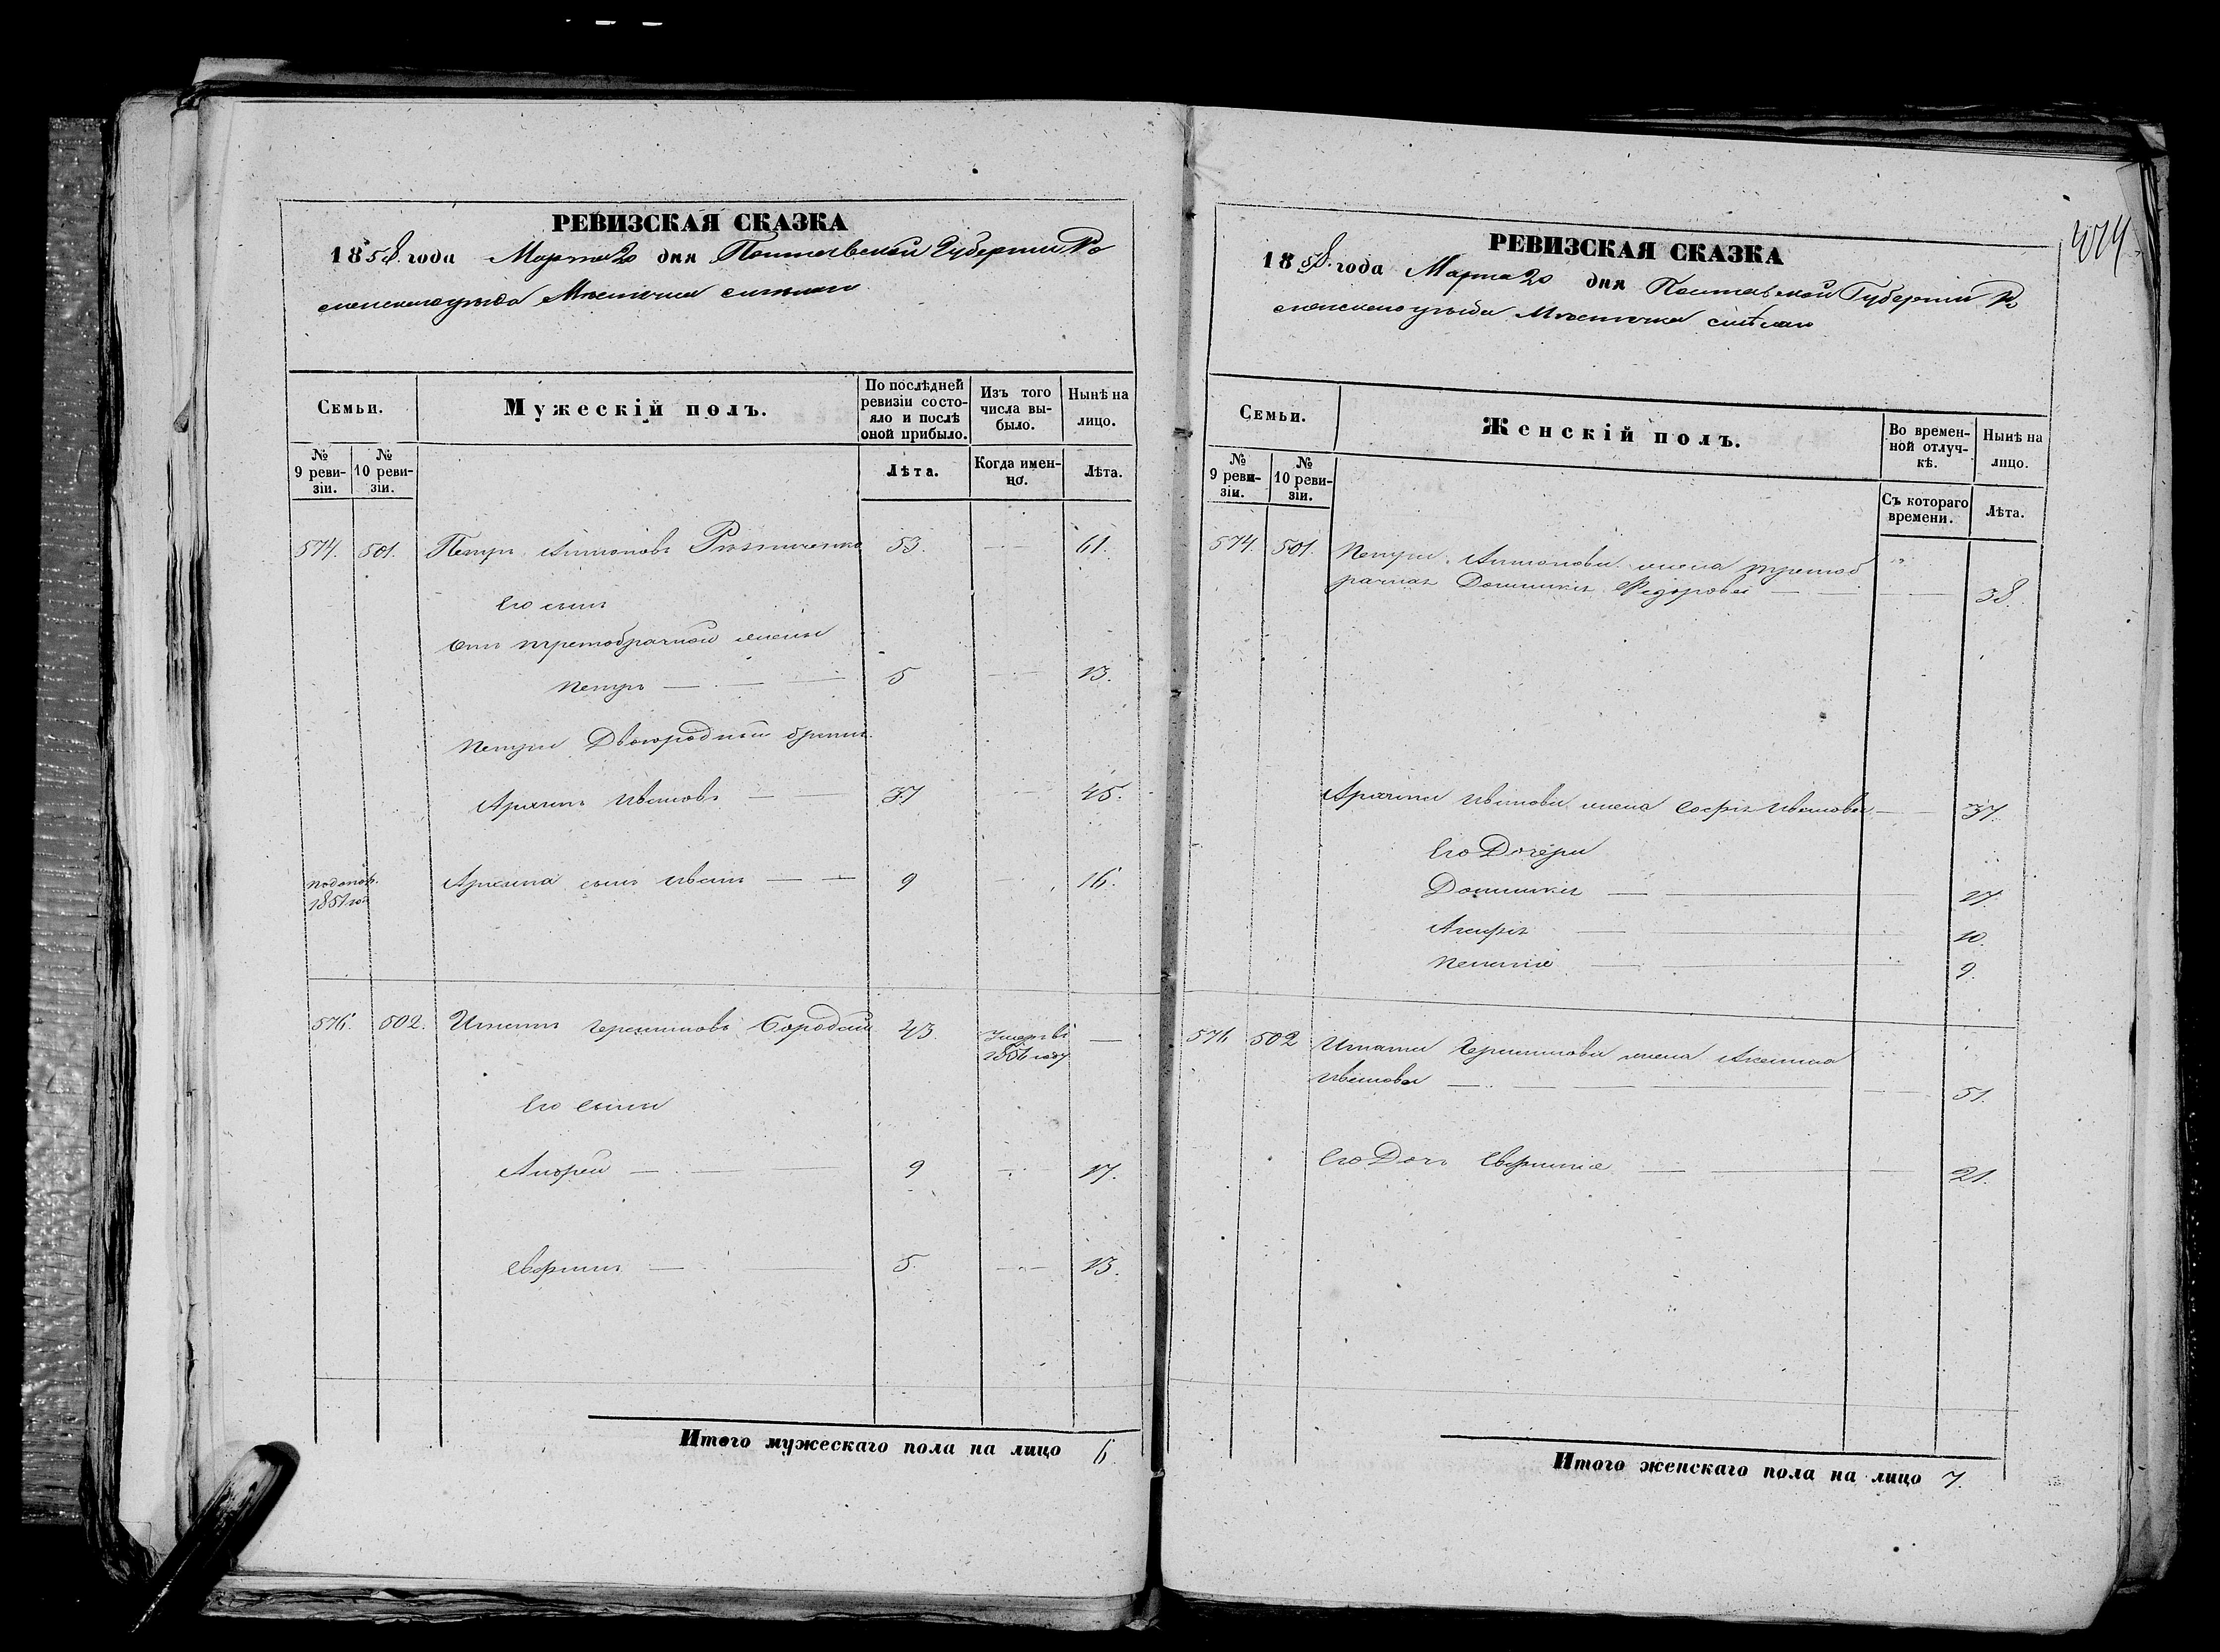 РЕВИЗСКАЯ СКАЗКА
1858 года Марта 20 дня Полтавской Губернии Ро
менского уезда Местечка Смелаго
Семьи.
Мужескій полъ.
По послѣдней ревизіи состо-
яло и послѣ
оной прибыло.
Изъ того
числа вы-
было.
Нынѣ на
лицо.
№
9 реви-
зіи.
№
10 реви-
зіи.
Лѣта.
Когда имен-
но.
Лѣта.
574. 501. Петръ Антоновъ 53. 61.
Его сынъ
Отъ третобрачной жены
Петръ 5 13.
Петра Двоюродный братъ
Архипъ Ивановъ 37 45.
1851 год
Архипа сынъ Иванъ 9 16.
576. 502. Игнатъ Бородай 43. Умерѣ
году
Его сыны
Андрей 9 17.
5. 13.
Итого мужескаго пола на лицо 6.
РЕВИЗСКАЯ СКАЗКА
1858 года Марта 20 дня Полтавской Губернии Ро
менского уезда Местечка Смѣлаго
Семьи.
Женскій полъ.
Во времен-
ной отлуч-
кѣ.
Нынѣ на
лицо.
№
9 реви-
зіи.
№
10 реви-
зіи.
Съ котораго
времени.
Лѣта.
574. 501. Петра Антонова жена третоб
рачная Домникія Федорова 38.
Архипа Иванова жена Софія Иванова 37.
Его Дочери
Домникія 17.
Агафія 10.
9.
576 502 Игната жена
Иванова 51.
Его Дочь 21.
Итого женскаго пола на лицо 7.